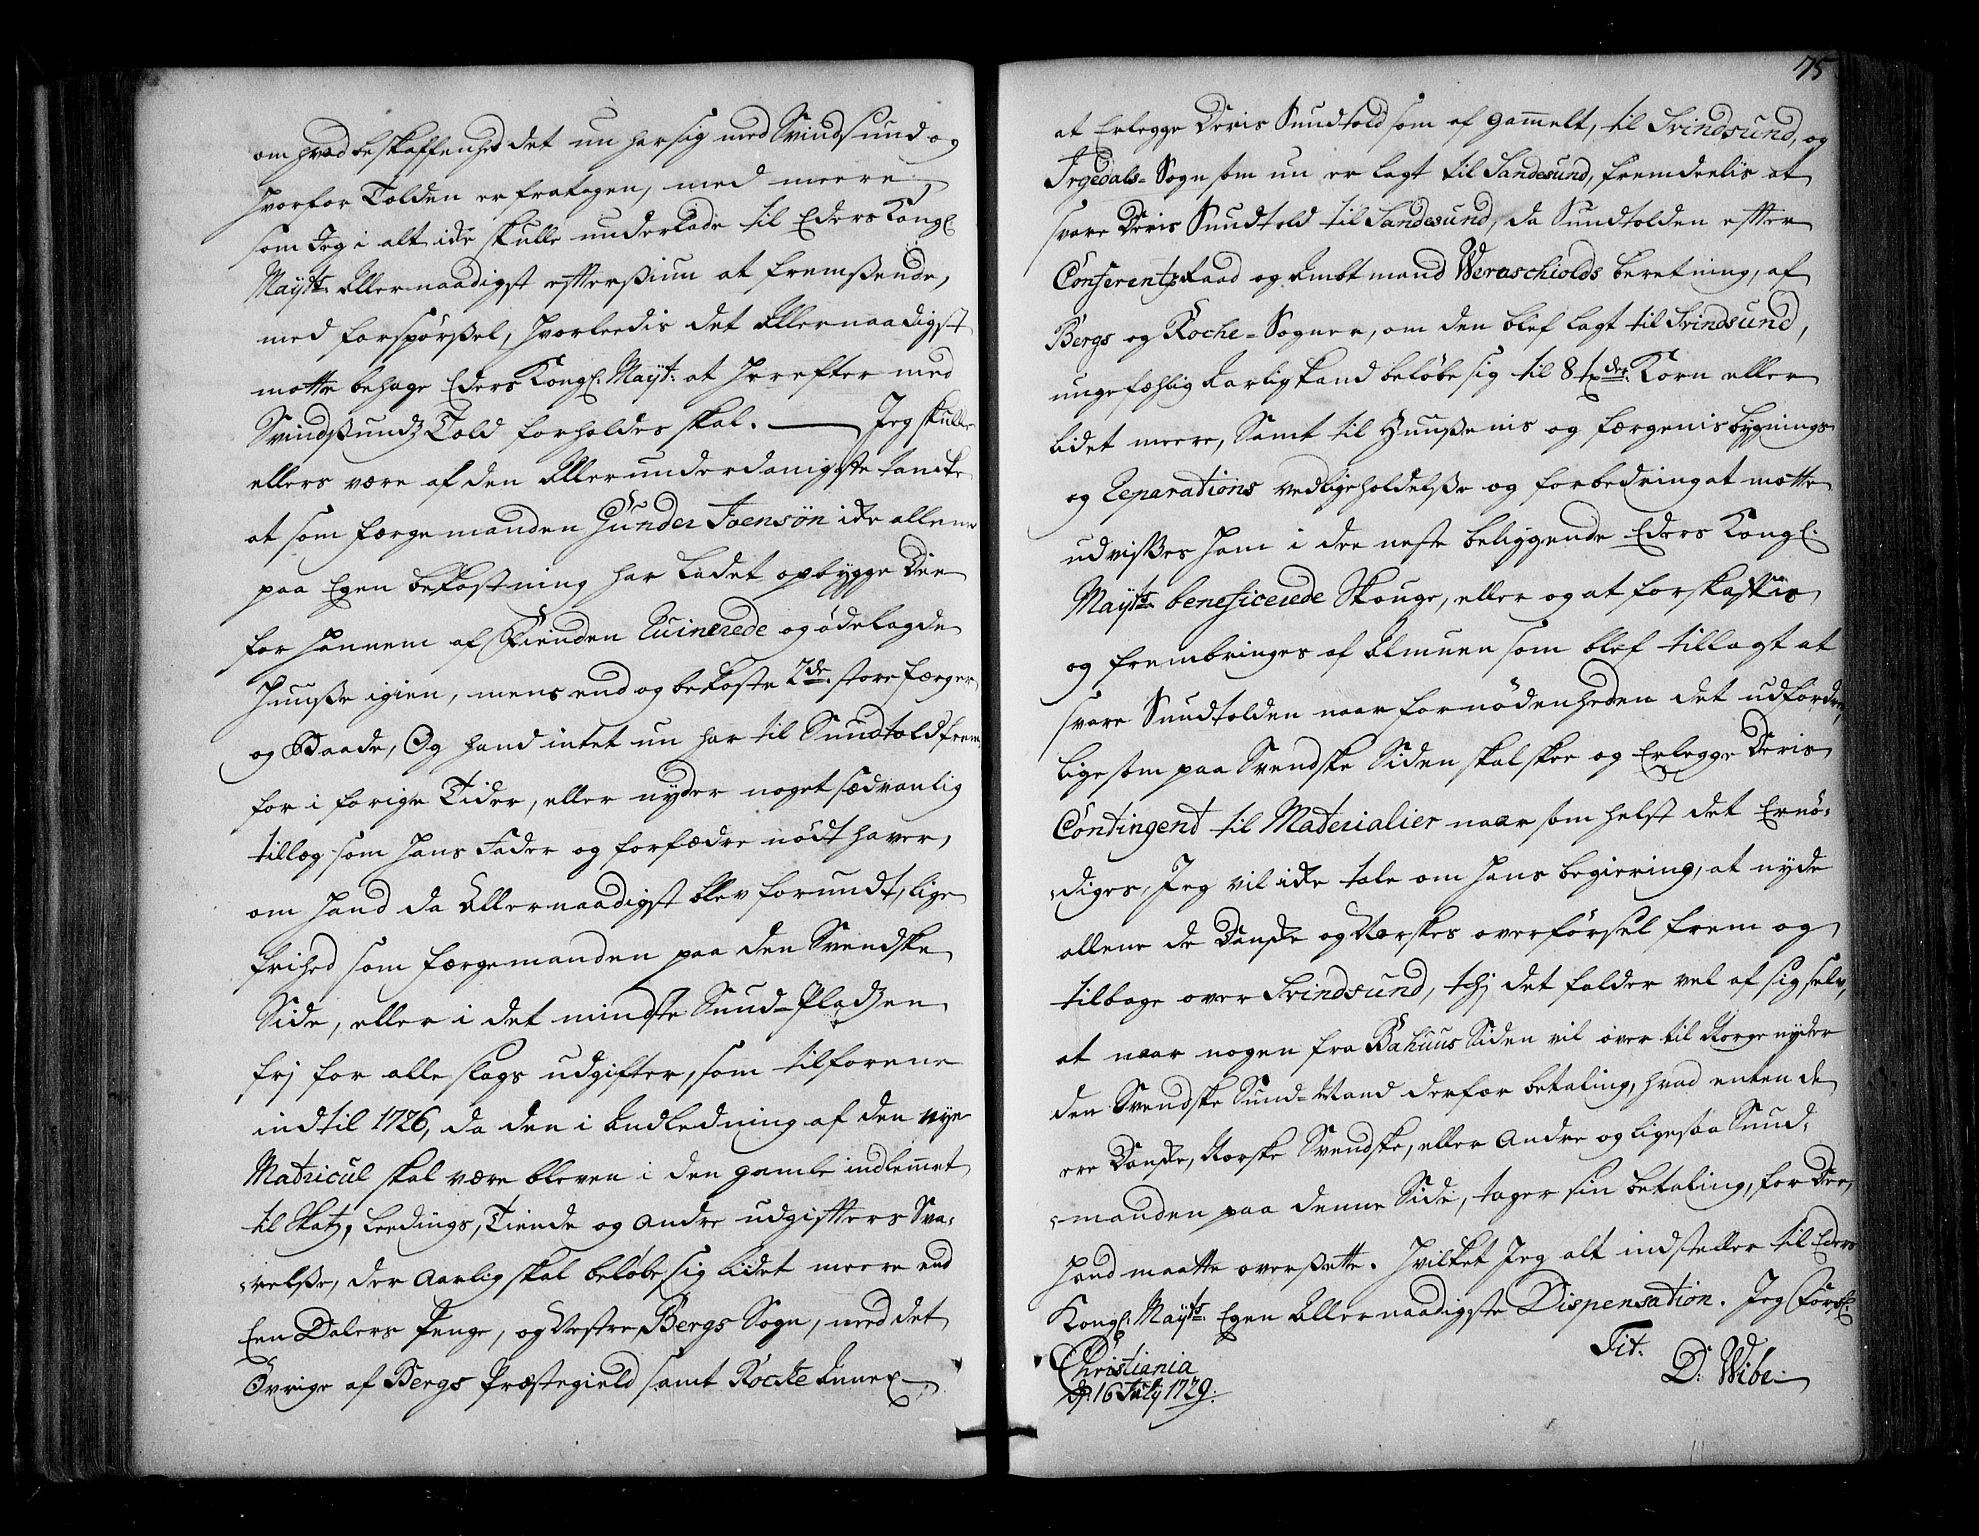 om hvad beskaffenhed det nu har sig med Svindsund og
hvorfor Tolden er fratagen, med meere
som Jeg i alt icke skulle underlade til Eders Kongl:
Mayts: Allernaadigst efftersiun at fremsende,
med forspørsel, hvorledis det Allernaadigst
motte behage Eders Kongl: Mayt: at herefter med
Svindsundz Told forholdes skal. — Jeg skulle
ellers være af den Allerunderdanigste tancke
at som færgemanden Gunder Joensøn icke allene
paa Egen bekostning har ladet opbygge Die
for hannem af Fienden Ruinerede og ødelagde
Huuse igien, mens end og bekoste 2de store færger
og Baade, Og hand intet nu har til Sundtold frem
for i forige Tider, eller nyder noget sædvanlig
tillæg som hans Fader og forfædre nødt haver,
om hand da Allernaadigst blev forundt, lige
frihed som færgemanden paa den Svendske
Side, eller i det mindste Sund-Pladzen
frj for alle slags udgifter, som tilforene
indtil 1726, da den i Anledning af den nye
Matricul skal være bleven i den gamle indlemet
til Skatz, Leedings, Tiende og andre udgiffters Sva-
-relse, der Aarlig skal beløbe sig lidet meere end
Een Dalers Penge, og Vestre Bergs Sogn, med det
Øvrige af Bergs Præstegield samt Rocke Annex
75
at Erlegge Deris Sundtold som af gamelt, til Svindsund, og
Irgedals-Sogn som nu er lagt til Sandesund, fremdeelis at
svare Deris Sundtold til Sandesund, da Sundtolden effter
Conferentz Raad og Ambtmand Weraschiolds beretning, af
Bergs og Roche-Sogner, om den blef lagt til Svindsund,
ungefæhlig Aarlig kand beløbe sig til 8 tøder Korn eller
lidet meere, Samt til Huusenis og færgenis bygnings
og Reparations vedligeholdelse og forbedring at motte
udvises ham i dee neste beliggende Eders Kongl:
Mayts: beneficerede Skouge, eller og at forskaffis
og frembringes af Almuen som blef tillagt at
svare Sundtolden naar fornødenheden det udfordrer,
ligesom paa Svendske Siden skal skee og Erlegge Deris
Contingent til Materialier naar som helst det Ernø-
-diges, Jeg vil icke tale om hans begiering, at nyde
allene de Danske og Norskes overførsel frem og
tilbage over Svindsund, thj det falder vel af sig selv,
at naar nogen fra Bahuus Siden vil over til Norge nyder
den Svendske Sund-Mand derfor betaling, hvad enten de
ere Danske, Norske Svendske, eller Andre og ligesaa Sund-
-manden paa denne Side, tager sin betaling, for Dee,
hand maatte oversette. Hvilket Jeg alt indstiller til Eders
Kongl: Mayts: Egen Allernaadigste Dispensation. Jeg Forbl:
Christiania
dj: 16 July 1729.
Tit:
D: Wibe